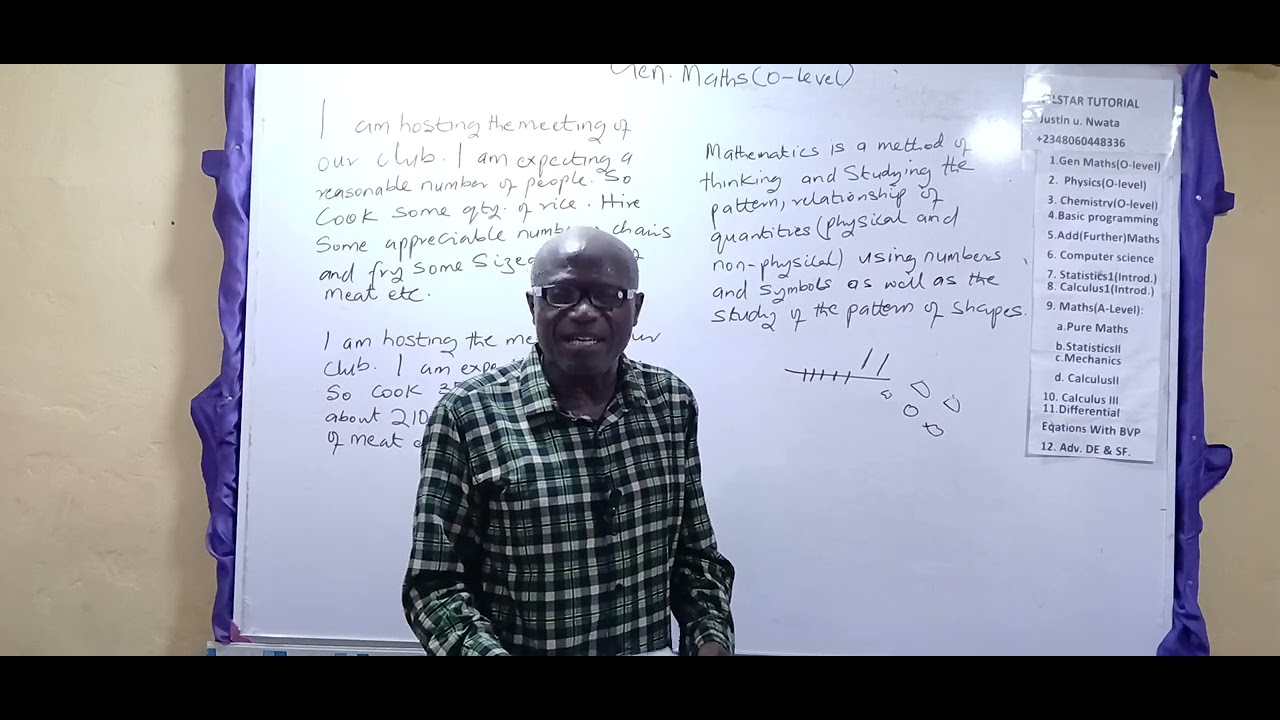 Gen. Maths(O-level)
I am hosting the meeting of
our club. I am expecting a
reasonable number of people. So
Cook some qty. of rice. Hire
Some appreciable chairs
and fry some sized
meat etc.
I am hosting the ur
club. I am
So cook
about 210
of meat
Mathematics is a method of
thinking and Studying the
pattern, relationship of
quantities (physical and
non-physical) using numbers
and symbols as well as the
study of the pattern of shapes.
LSTAR TUTORIAL
Justin u. Nwata
+2348060448336
1.Gen Maths(O-level)
2. Physics(O-level)
3. Chemistry(O-level)
4.Basic programming
5.Add(Further)Maths
6. Computer science
7. Statistics1(Introd.)
8. Calculus1(Introd.)
9. Maths(A-Level):
a.Pure Maths
b.StatisticsII
c.Mechanics
d. CalculusII
10. Calculus III
11.Differential
Eqations With BVP
12. Adv. DE & SF.